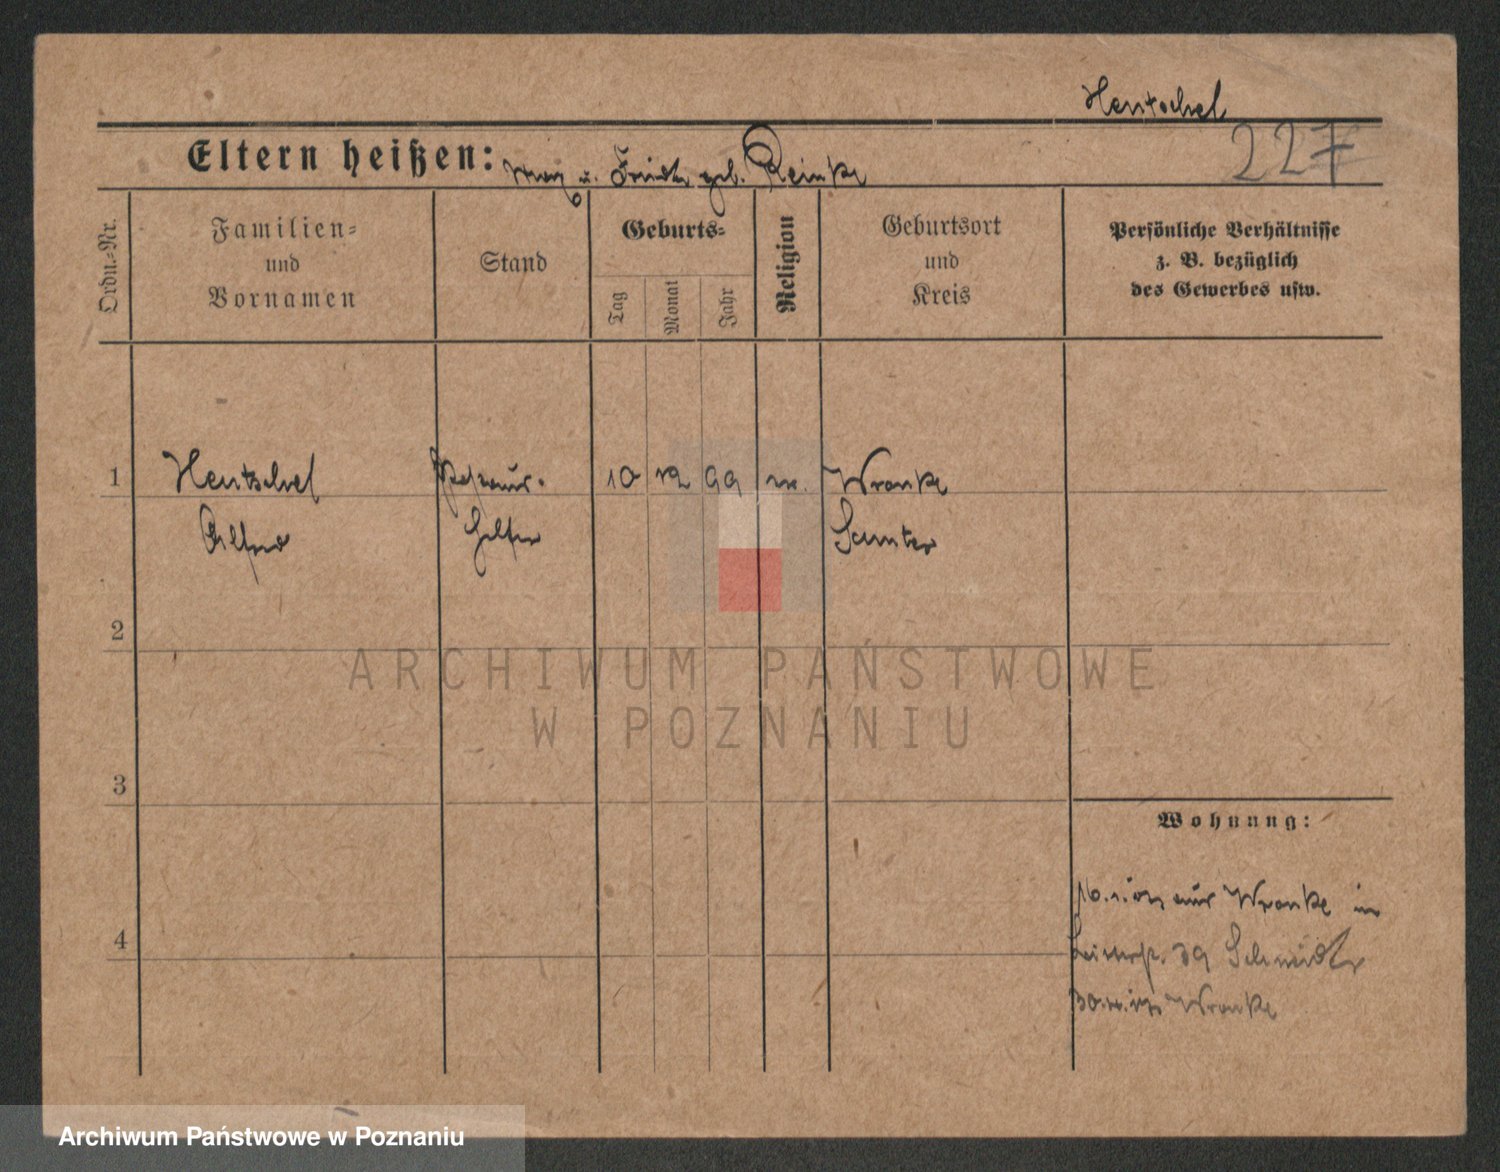 Hentschel
227
Eltern heißen: Max u. Frieda geb. Reinke
Ordn.-Nr.
Familien-
und
Vornamen
Stand
Geburts-
Tag
Monat
Jahr
Religion
Geburtsort
und
Kreis
Persönliche Verhältnisse
z. B. bezüglich
des Gewerbes usw.
1 Hentschel 10 12 99 Wronke
Alfred helfer Samter
2
ARCHIWUM PAŃSTWOWE
W POZNANIU
3
Wohnung:
aus Wronke in
4
39 Schmidt
Wronke
Archiwum Państwowe w Poznaniu